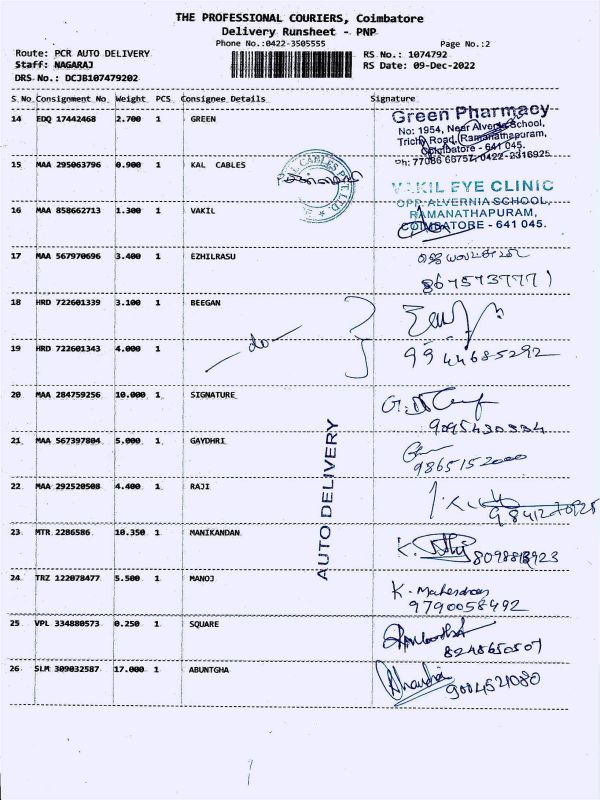 THE PROFESSIONAL COURIERS, Coimbatore
Delivery Runsheet - PNP
Phone No.:0422-3505555 Page No.:2
Route: PCR AUTO DELIVERY RS No.: 1074792
Staff: NAGARAJ RS Date: 09-Dec-2022
DRS No.: DCJB107479202
S No Consignment No Weight PCS Consignee Details Signature
14 EDQ 17442468 2.700 1 GREEN
Green Pharmacy
No: 1954, Near Alvernia School,
Trichy Road, (Ramanathapuram,
Coimbatore - 641 045.
Ph: 77086 66757, 0422-2316925
15 MAA 295063796 0.900 1 KAL CABLES
CABLES PVT LTD
16 MAA 858662713 1.300 1 VAKIL
VAKIL EYE CLINIC
OPP. ALVERNIA SCHOOL,
RAMANATHAPURAM,
COIMBATORE - 641 045.
17 MAA 567970696 3.400 1 EZHILRASU
18 HRD 722601339 3.100 1 BEEGAN
19 HRD 722601343 4.000 1
do
9944685292
20 MAA 284759256 10.000 1 SIGNATURE
9095430334
21 MAA 567397804 5.000 1 GAYDHRI
9865152000
22 MAA 292520508 4.400 1 RAJI
23 MTR 2286586 10.350 1 MANIKANDAN
24 TRZ 122078477 5.500 1 MANOJ
K. Mahendran
9790058492
25 VPL 334880573 0.250 1 SQUARE
8248650507
26 SLM 309032587 17.000 1 ABUNTGHA
AUTO DELIVERY